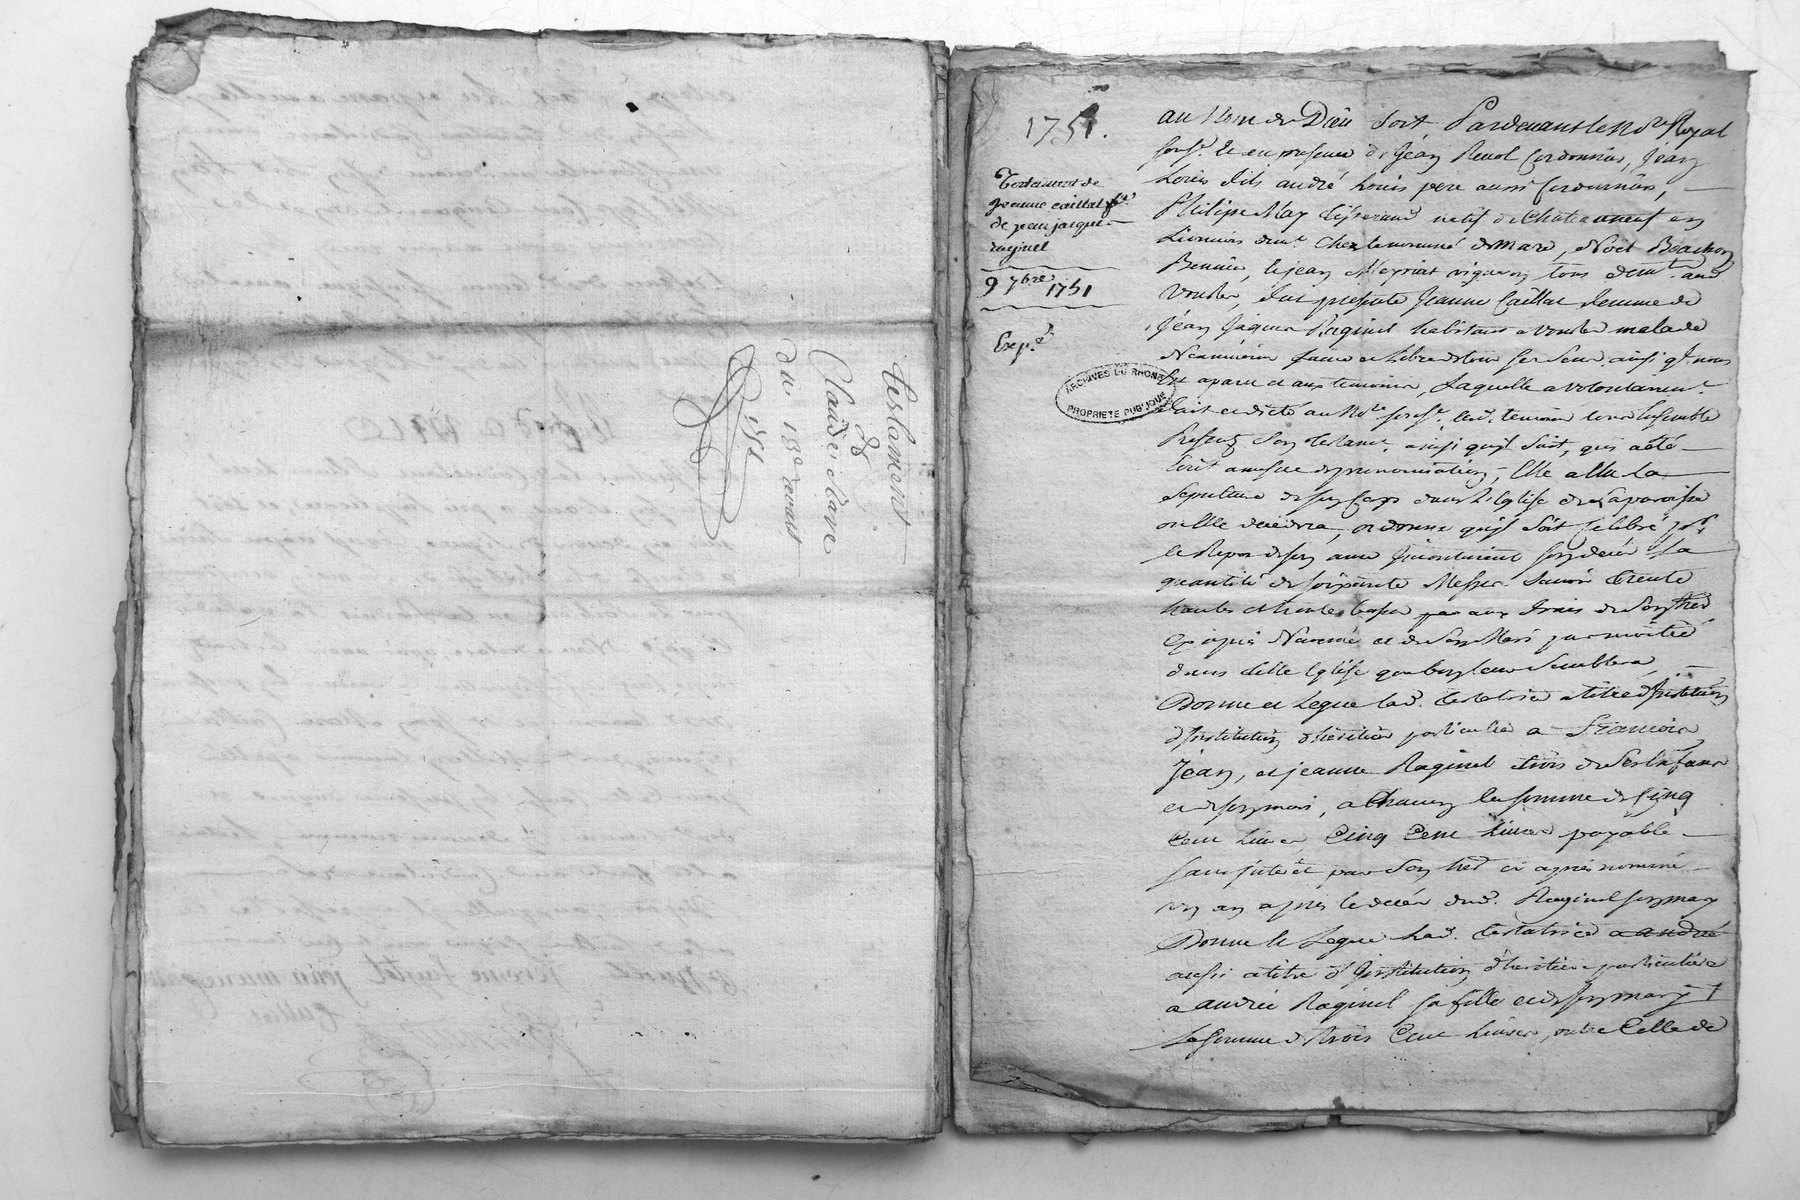 Testament
de
Claude clare
du 13e
1751
1751.
Testament de
jeanne caillat fe
de jean jacques
raginel
9 7bre 1751
Exp.é
ARCHIVES DU RHONE
PROPRIETE PUBLIQUE
au Nom de Dieu soit, Pardevant le Nre Royal
sousé. et en presence de Jean Revol Cordonnier, Jean
Louis fils andré Louis pere aussi Cordonnier,
Philipe May tisserand natif de Chateauneuf en
Lionnois demt. chez le nommé demare, Noel
Benier, et jean vigneron tous demt. aud.
Vourles, fut presente Jeanne Caillat femme de
Jean Jaques Raginel habitant a Vourles malade
Neanmoins saine et libre de tous ses sens ainsi qe. nous
est aparu et aux temoins, Laquelle a volontairemt.
fait et dicté au Nore. sousé. aud. temoins tous Ensemble
Presents son testamt. ainsi quil suit, qui a été
Ecrit a mesure de prononciation, Elle a elu la
Sepulture de son Corps dans l'Eglise de sa paroisse
ou Elle decedera, ordonne quil soit Celebré pr.
le Repos de son ame son decés la
quantité de soixante Messes savoir trente
hautes et trente basses par aux frais de son her.
Cy apres Nommé et de son Mari par moitié
dans telle Eglise que bon leur semblera,
Donne et Legue lad. testatrice a titre d'Institution
d'Institution d'heritier particulier a Francois
Jean, et jeanne Raginel trois de ses Enfans
et de son mari, a Chacun la somme de Cinq
Cent Livres, Cinq Cent Livres payable
sans interêt par son her. ci apres nommé
un an apres le decés dud. Raginel son mary
Donne et Legue Lad. testatrice a andré
aussi a titre d'Institution d'heritiere particuliere
a andrée Raginel sa fille et de son mary
la somme de trois Cent Livres, outre Celle de